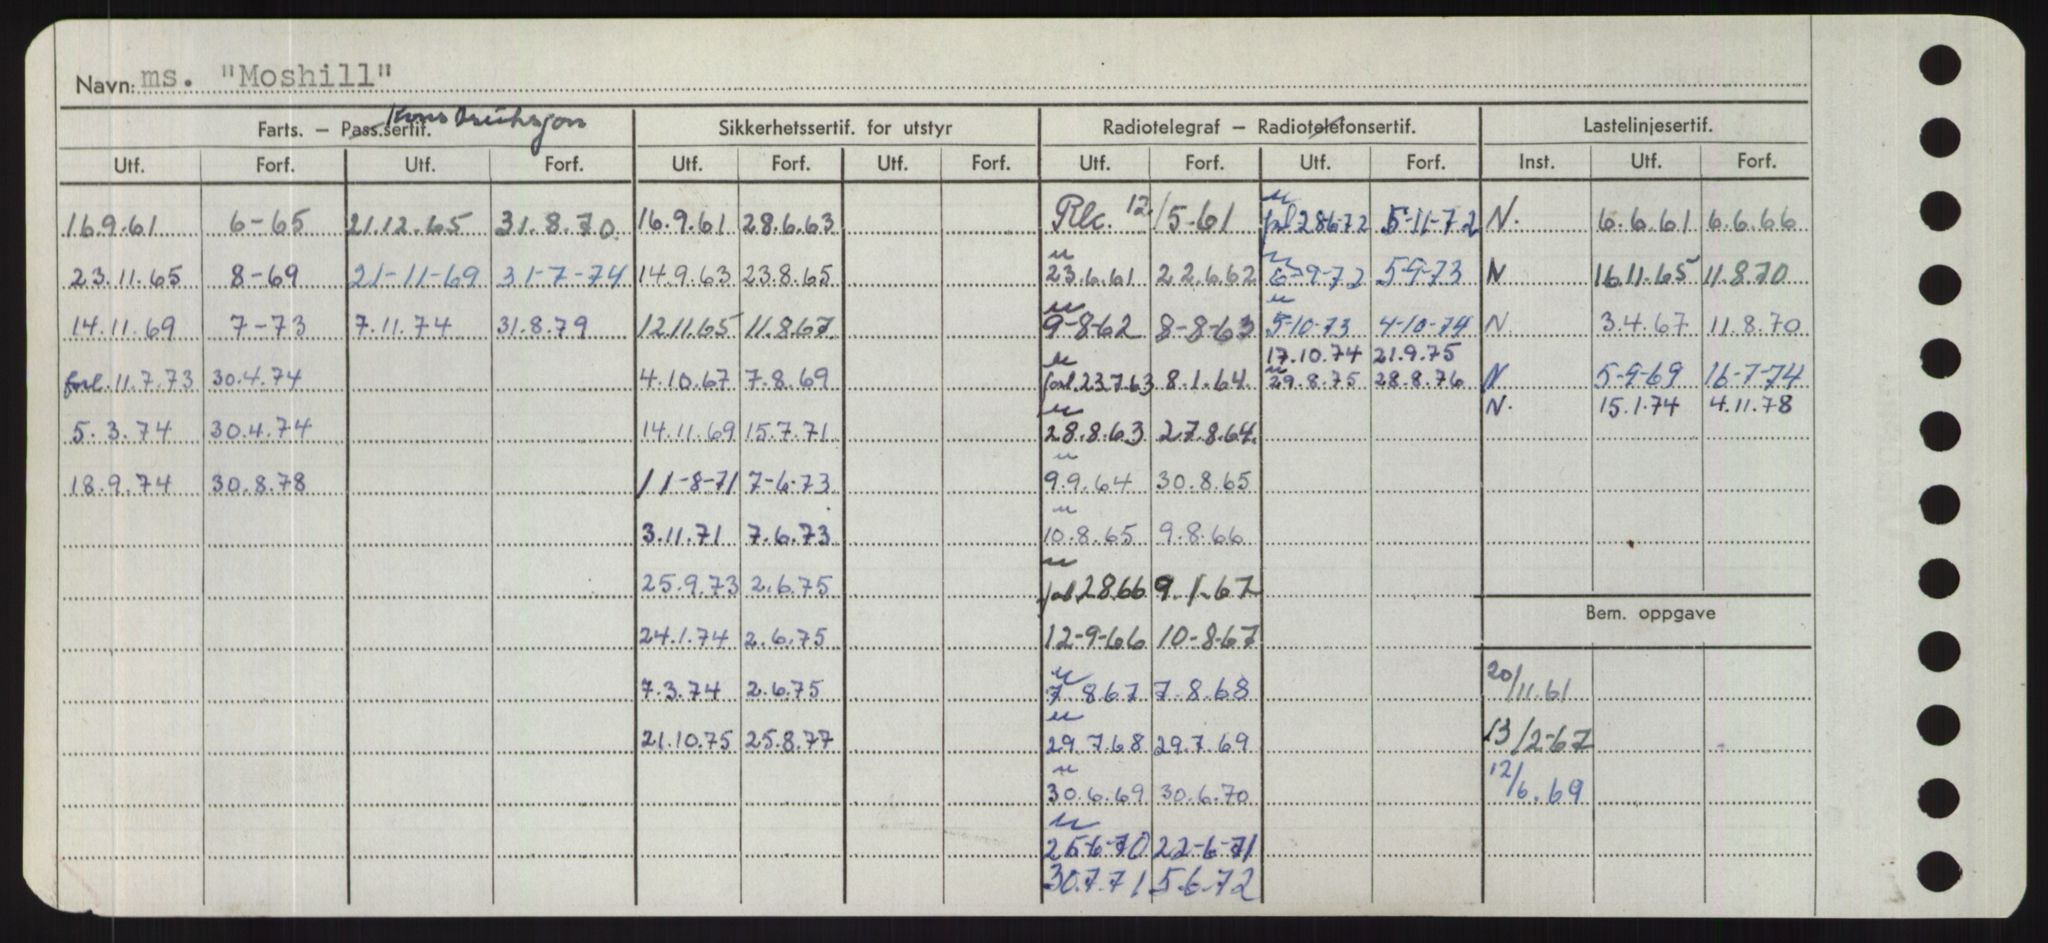 Navn: ms. "Moshill"
Farts. – Pass.sertif. Konstruksjon Sikkerhetssertif. for utstyr Radiotelegraf – Radiotelefonsertif. Lastelinjesertif.
Utf. Forf. Utf. Forf. Utf. Forf. Utf. Forf. Utf. Forf. Utf. Forf. Inst. Utf. Forf.
16.9.61 6-65 21.12.65 31.8.70. 16.9.61 28.6.63 Rlc. 12/5-61 forl 28672 5-11-72 N. 6.6.61 6.6.66
23.11.65 8-69 21-11-69 31-7-74 14.9.63 23.8.65 23.6.61 22.6.62 6-9-72 5-9-73 N 16.11.65 11.8.70
14.11.69 7-73 7.11.74 31.8.79 12.11.65 11.8.67 9-8-62 8-8-63 5-10-73 4-10-74 N. 3.4.67 11.8.70
17.10.74 21.9.75
forl. 11.7.73 30.4.74 4.10.67 7.8.69 forl 23.7.63 8.1.64. 29.8.75 28.8.76 N 5-9-69 16-7-74
N. 15.1.74 4.11.78
5.3.74 30.4.74 14.11.69 15.7.71 28.8.63 27.8.64.
18.9.74 30.8.78 11-8-71 7-6-73 9.9.64 30.8.65
3.11.71 7.6.73 10.8.65 9.8.66
25.9.73 2.6.75 forl 2866 9.1-67
Bem. oppgave
24.1.74 2.6.75 12-9-66 10-8-67
7.3.74 2.6.75 7 867 7.8.68 20/11.61
21.10.75 25.8.77 29 7.68 29.7.69 13/2-67
30.6.69 30.6.70 12/6.69
25-6-70 22-6-71
30.7.71 5.6.72